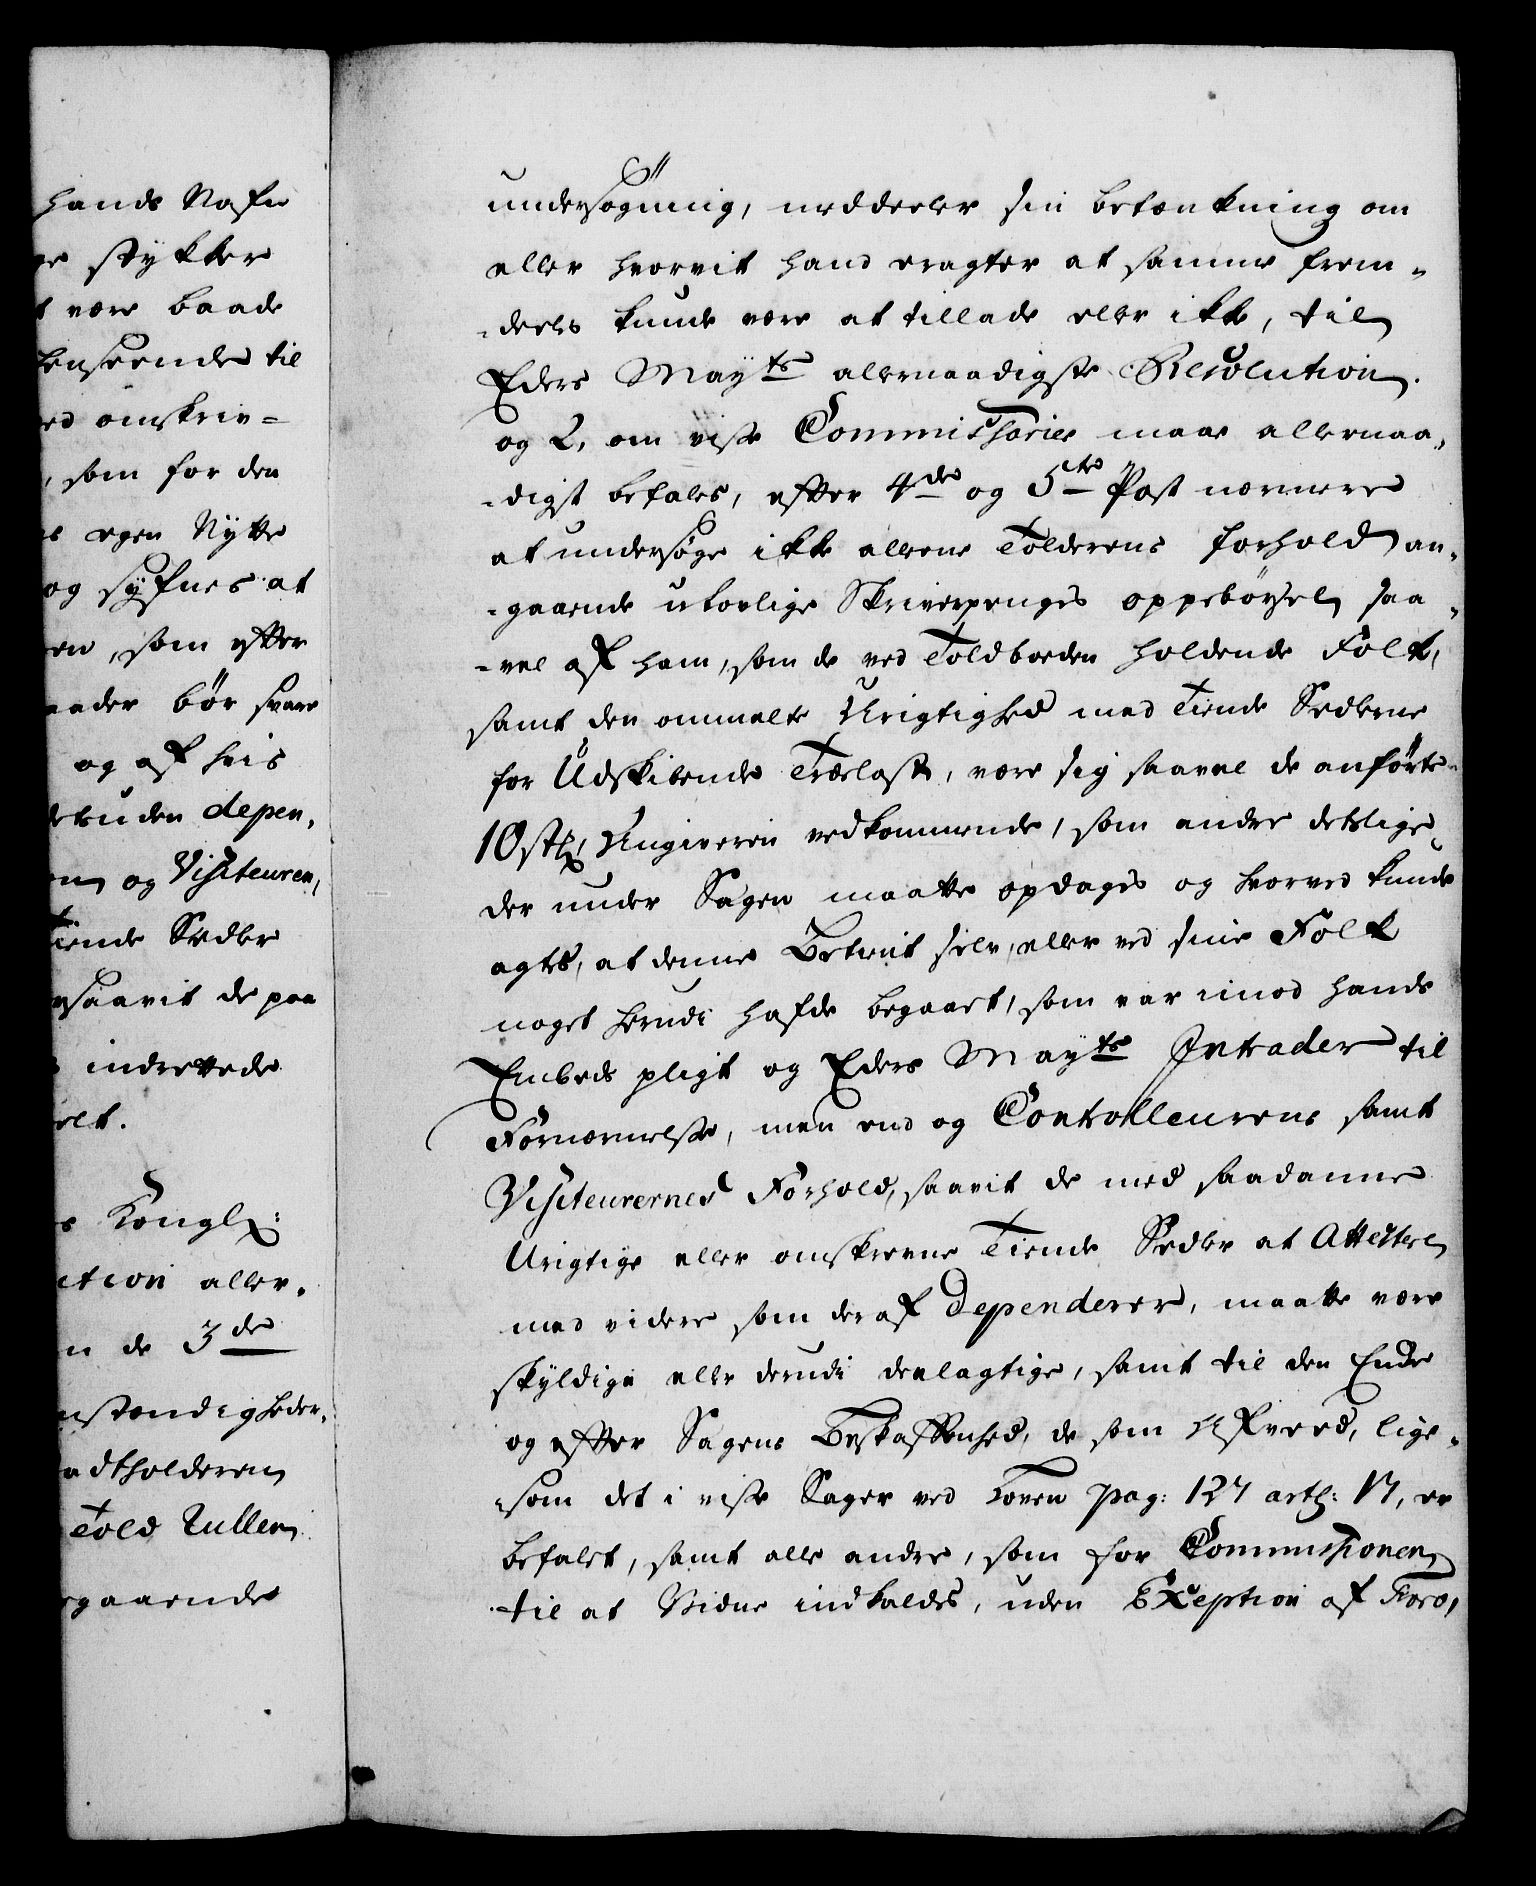 hands Nafn
stykker
være baade
henseende til
ed omskriv=
, som for den
egen Nytte
og syfnes at
en, som efter
aader bør svare
og af heis
desuden depen,
og Visiteuren,
Tiende Sedler
saavit de paa
indrettede
elt.
Kongl:
ction aller,
n de 3de
mstændigheder,
adtholderen
Told Rullen
gaaende
undersøgning, meddeeler sin betænkning om
eller hvorvit hand eragter at samme frem,
-deeles kunde være at tillade eller ikke, til
Eders Mayts allernaadigste Resolution.
og 2, om visse Commissarier maae allernaa,
-digst befales, efter 4de og 5te Post nærmere
at undersøge ikke alleene Tolderens forhold an,
-gaaende ulovlige Skriverpenges oppebörsel saa,
-vel af ham, som de ved Toldboeden holdende Folk,
samt den ommelte Urigtighed med Tiende Sedlerne
for Udskibende Trælast, være sig saavel de anførte
10 st: Angiveren vedkommende, som andre deslige
der under Sagen maatte opdages og hvorved kunde
agtes, at denne Betient selv, eller ved sine Folk
noget herudi hafde begaaet, som var imod hands
Embeds pligt og Eders Mayts Intrader til
Fornærmelse, men end og Controlleurens samt
Visiteurernes Forhold, saavit de med saadanne
Urigtige eller omskrevne Tiende Sedler at Attestere
med videre som deraf dependerer, maatte være
skyldige eller derudi deelagtige, samt til den Ende
og efter Sagens Beskaffenhed, de som Afveed, lige,
-som det i visse Sager ved Loven pag: 127 artl: 17, er
befalet, samt alle andre, som for Commissionen
til at Vidne indkaldes, uden Exception af Foro,